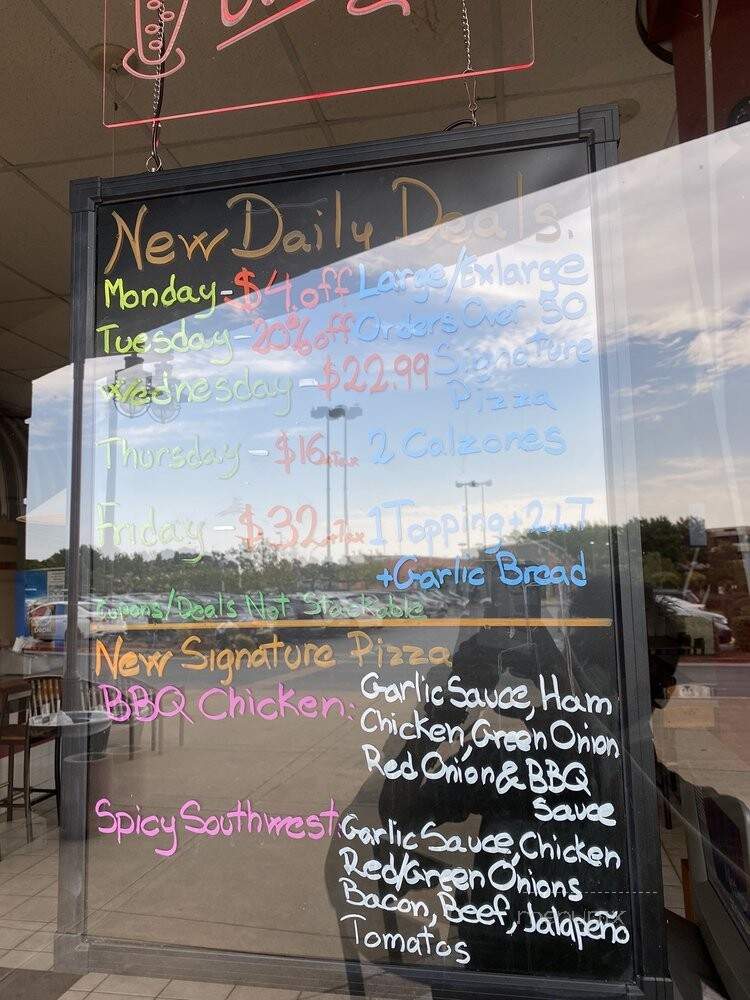 New Daily Deals.
Monday - $4.off Large/Exlarge
Tuesday - 20% off Orders Over 50
Wednesday - $22.99 Signature
Pizza
Thursday - $16+Tax 2 Calzones
Friday - $32+Tax 1 Topping + 2 LT
+Garlic Bread
Coupons/Deals Not Stackable
New Signature Pizza
BBQ Chicken: Garlic Sauce, Ham
Chicken, Green Onion
Red Onion & BBQ
Sauce
Spicy Southwest: Garlic Sauce, Chicken
Red/Green Onions
Bacon, Beef, Jalapeño
Tomatos